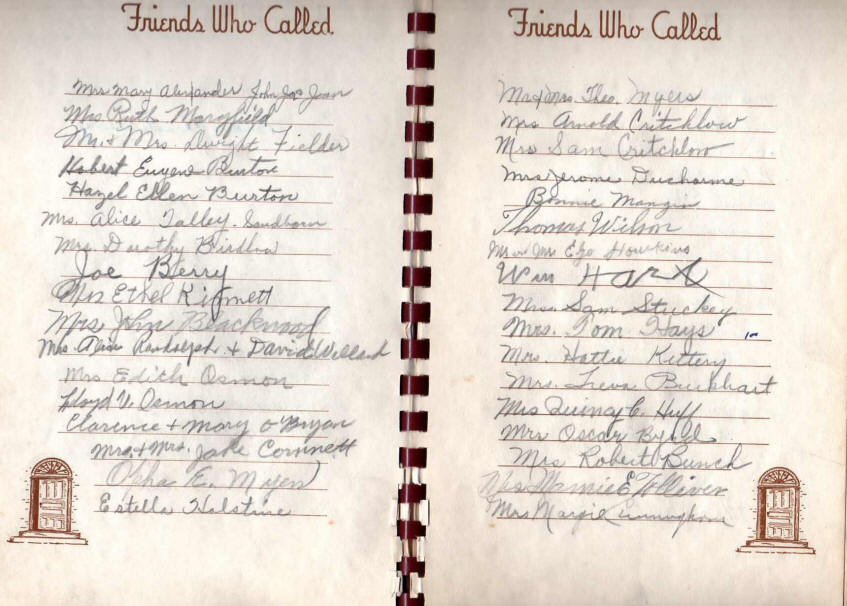 Friends Who Called
Mrs Mary Alexander John Joe Joan
Mrs Ruth Maryfield
Mr. & Mrs. Dwight Fielder
Robert Eugene Burton
Hazel Ellen Burton
Mrs. Alice Talley. Sandborn
Mrs. Dorothy
Joe Berry
Mrs Ethel
Mrs John Blackwood
Mrs. Alice Randolph + David Willard
Mrs Edith Osmon
Lloyd V. Osmon
Clarence + Mary O'Bryan
Mr. + Mrs. Jake Cominett
E. Myers
Estella
Friends Who Called
Mr & Mrs. Theo. Myers
Mrs Arnold Critchlow
Mrs Sam Critchlow
Mrs Jerome Ducharme
Bonnie Mangin
Thomas Wilson
Mr and Mrs Hawkins
Wm Hart
Mrs. Sam Stuckey
Mrs. Tom Hays
Mrs. Hattie Kettery
Mrs. Treva Burkhart
Mrs Quincy C. Huff
Mrs Oscar
Mrs Robert Bunch
Mrs. Mamie E. Tolliver
Mrs Margie Cunningham